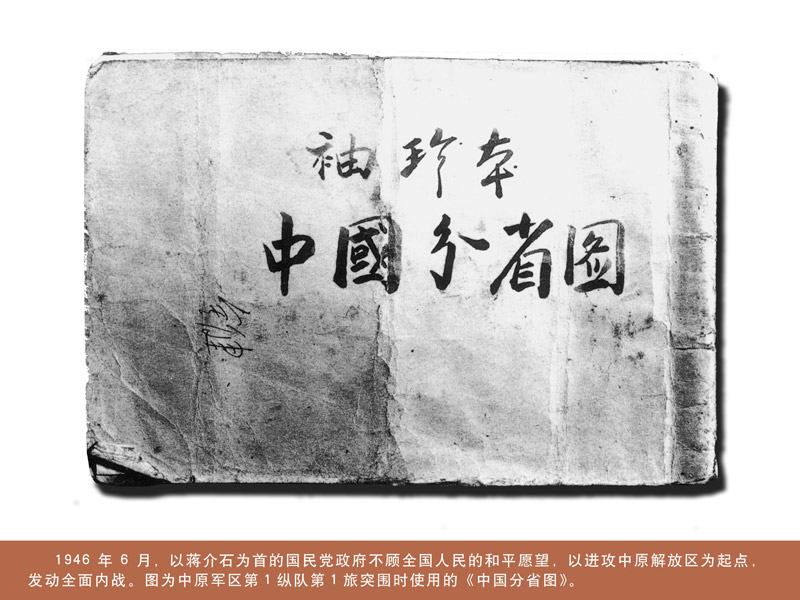 袖珍本
中國分省图
1946 年 6 月，以蒋介石为首的国民党政府不顾全国人民的和平愿望，以进攻中原解放区为起点，
发动全面内战。图为中原军区第 1 纵队第 1 旅突围时使用的《中国分省图》。